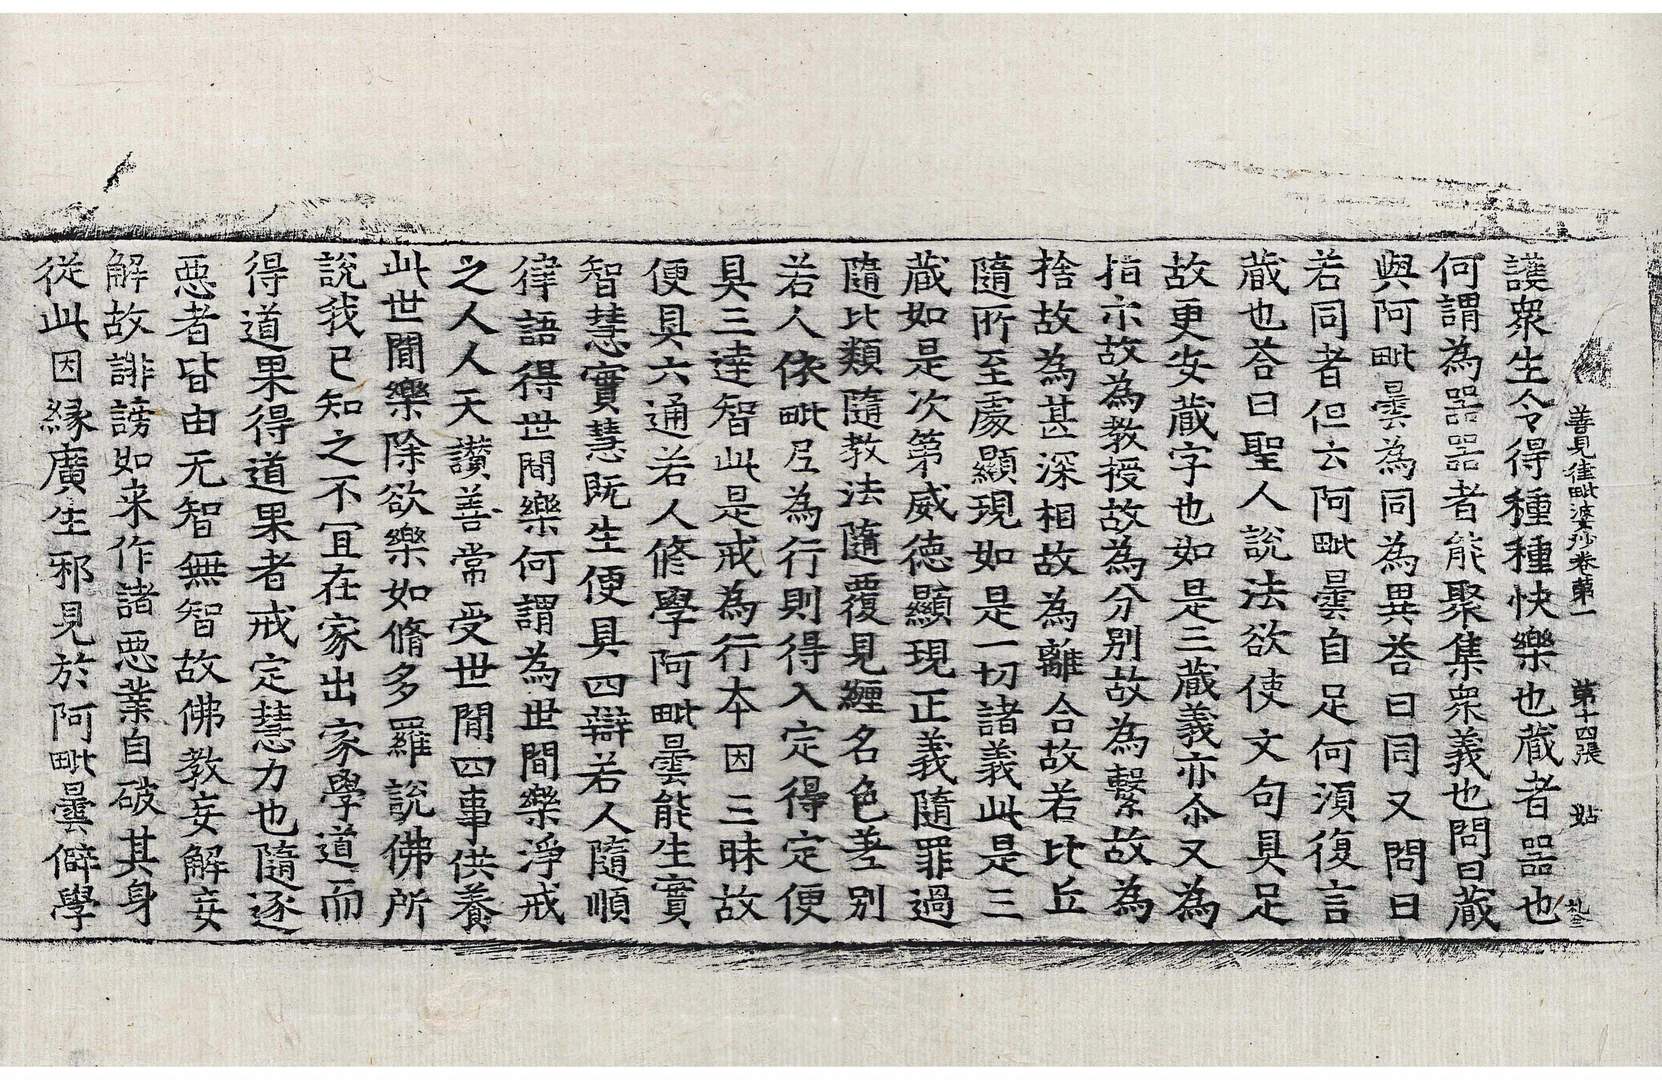 善見律毗婆沙卷第一 第十四張 姑
護衆生令得種種快樂也蔵者器也
何謂為器器者能聚集衆義也問曰蔵
與阿毗曇為同為異荅曰同又問曰
若同者但云阿毗曇自足何湏復言
蔵也荅曰聖人說法欲使文句具足
故更安蔵字也如是三蔵義亦尒又為
指示故為教授故為分别故為繫故為
捨故為甚深相故為離合故若比丘
隨所至處顯現如是一切諸義此是三
蔵如是次第威徳顯現正義隨罪過
隨比類隨教法隨覆見纏名色差别
若人依毗尼為行則得入定得定便
具三達智此是戒為行夲因三昧故
便具六通若人修學阿毗曇能生實
智慧實慧既生便具四辯若人隨順
律語得世間樂何謂為世間樂淨戒
之人人天讃善常受世間四事供養
此世間樂除欲樂如脩多羅說佛所
說我已知之不冝在家出家學道而
得道果得道果者戒定慧力也隨逐
惡者皆由无智無智故佛教妄解妄
解故誹謗如来作諸惡業自破其身
従此因緣廣生邪見於阿毗曇僻學